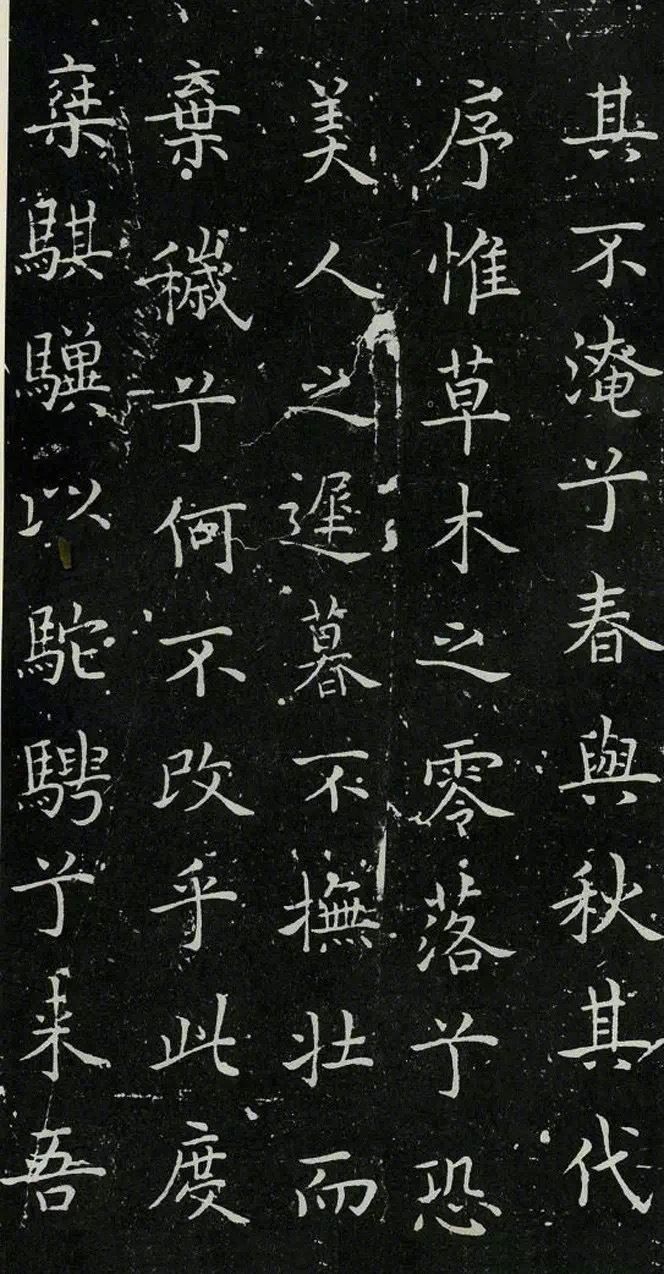 其不淹兮春與秋其代
序惟草木之零落兮恐
美人之遲暮不撫壯而
棄穢兮何不改乎此度
椉騏驥以駝騁兮来吾